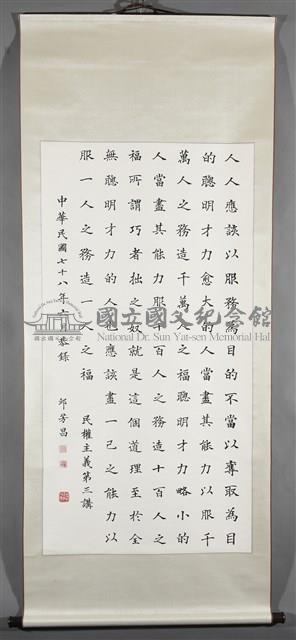 人人應該以服務為目的不當以奪取為目
的聰明才力愈大的人當盡其能力以服千
萬人之務造千萬人之福聰明才力略小的
人當盡其能力服十百人之務造十百人之
福所謂巧者拙之奴就是這個道理至於全
無聰明才力的人也應該盡一己之能力以
服一人之務造一人之福 民權主義第三講
中華民國七十八年 月恭錄 邱芳昌
國立國父紀念館
National Dr. Sun Yat-sen Memorial Hall